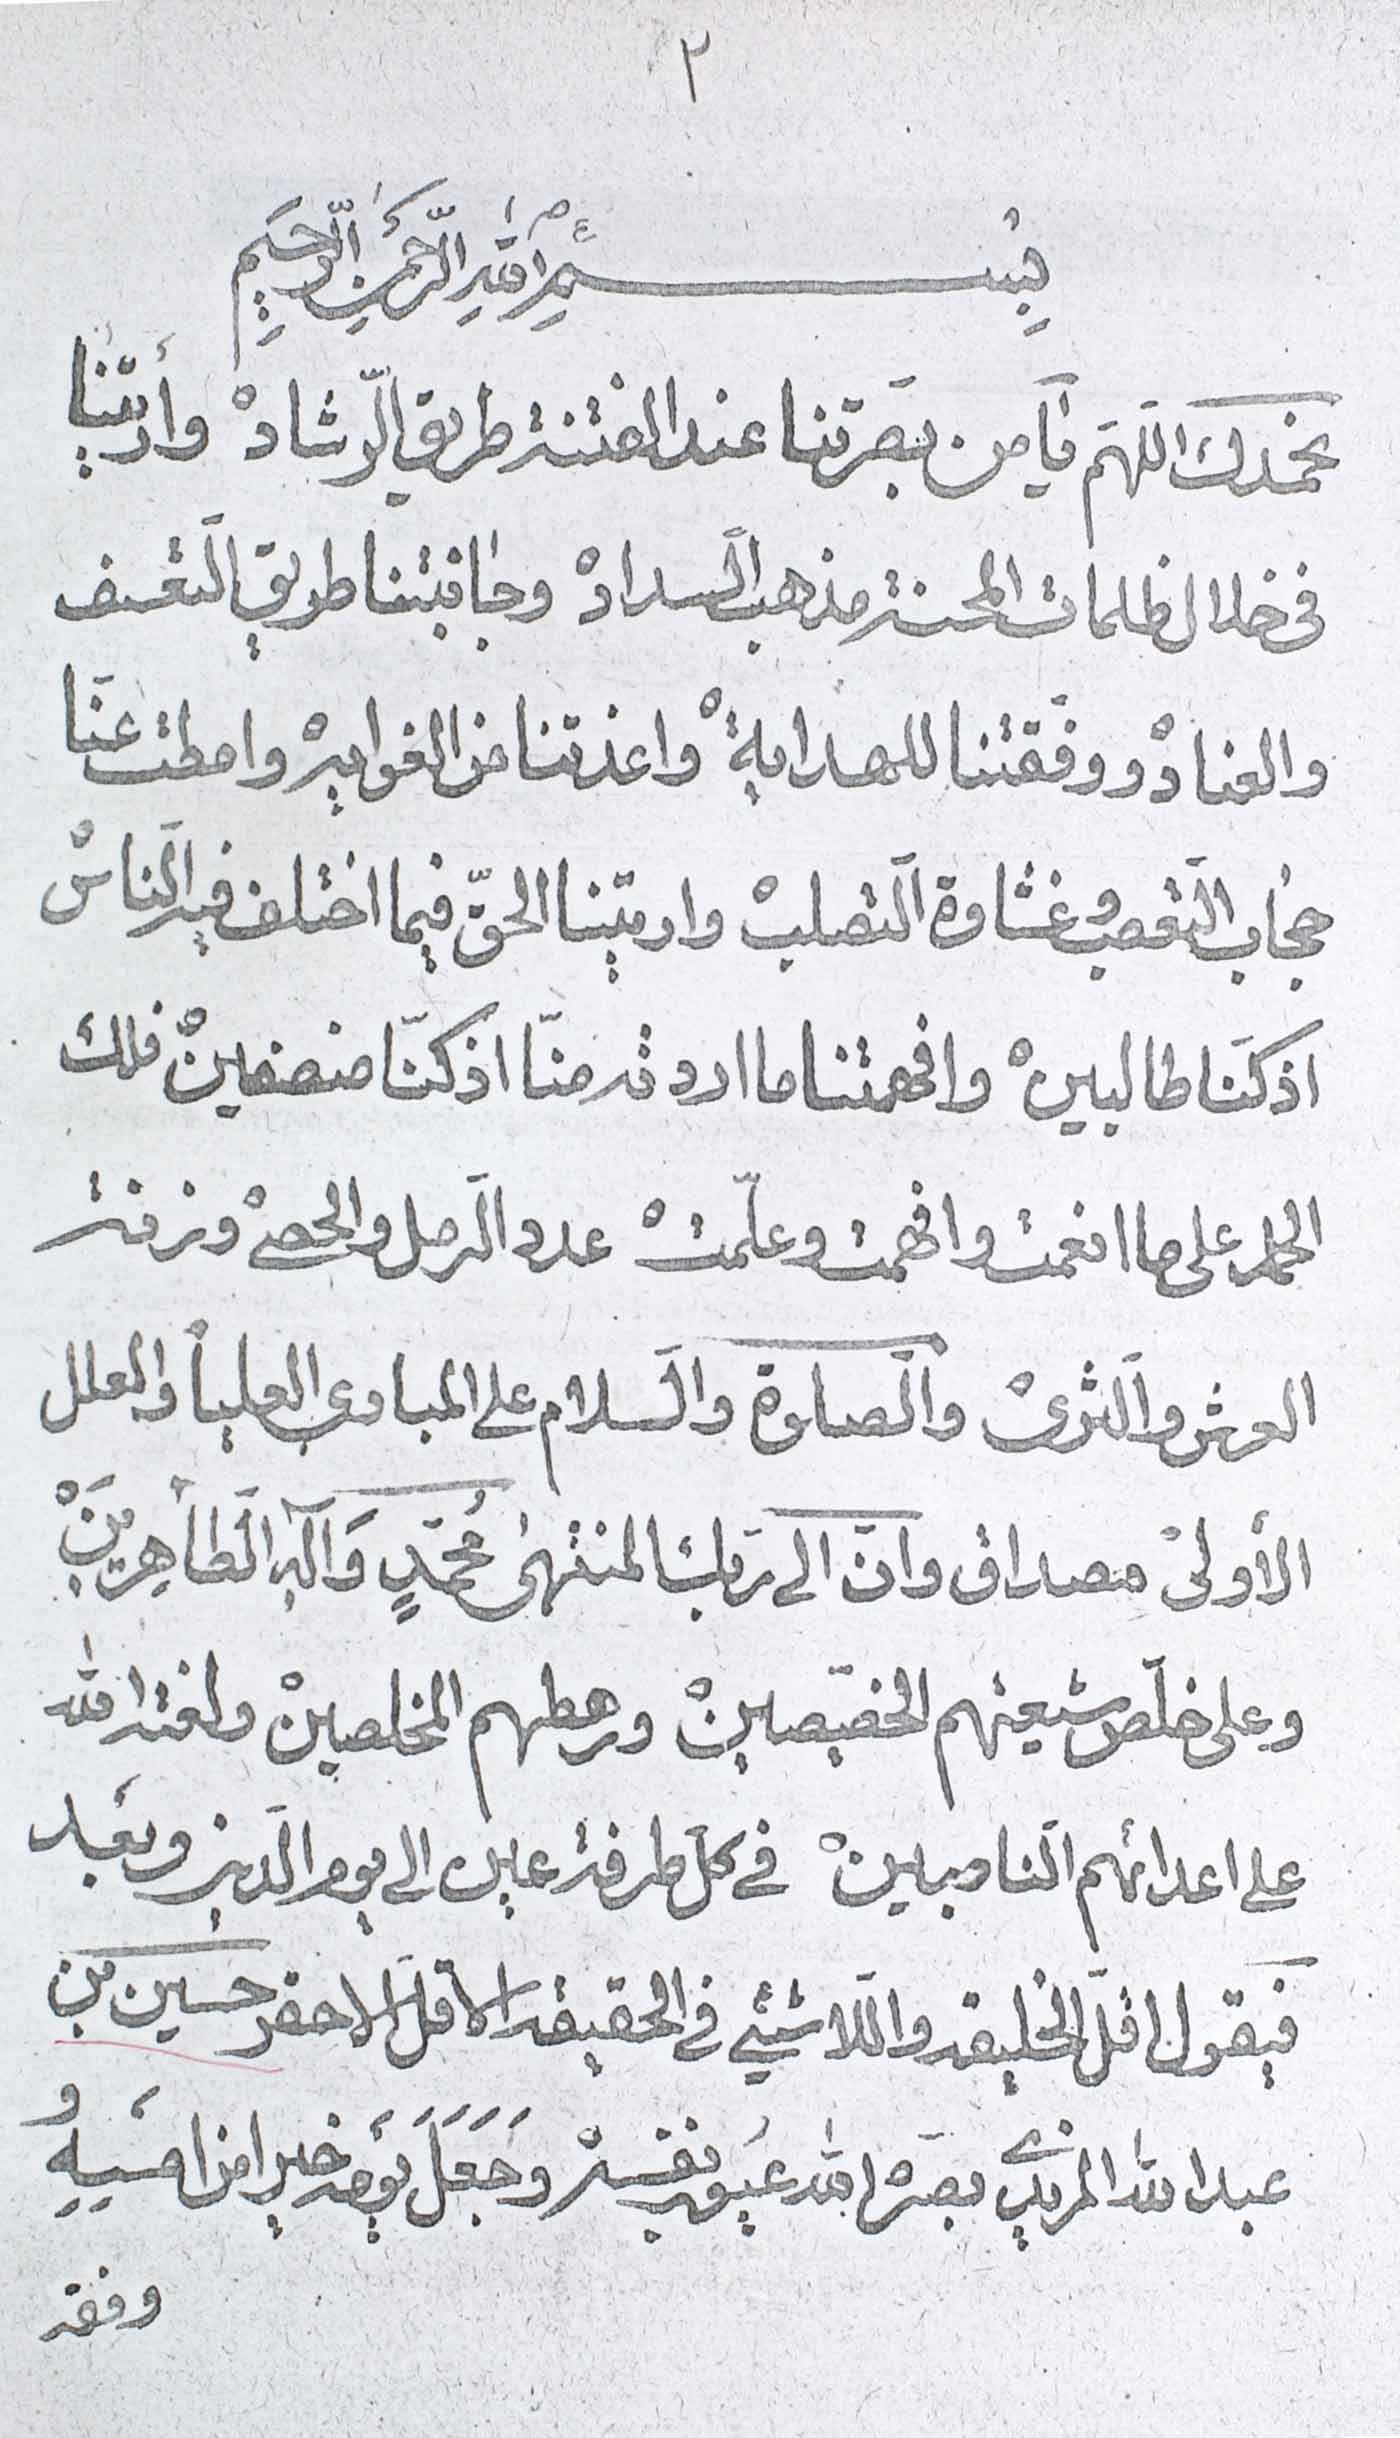 ٢
بسم الله الرحمن الرحيم
نحمدك اللهم يا من بصرتنا عند الفتنة طريق الرشاد وأريتنا
في خلال ظلمات المحنة مذهب السداد وجانبتنا طريق التعسف
والعناد ووفقتنا للهداية واعذتنا من الغواية وامطت عنا
حجاب التعصب وغشاوة التصلب واريتنا الحق فيما اختلف فيه الناس
اذ كنا طالبين وافهمتنا ما اردته منا اذ كنا منصفين فلك
الحمد على ما انعمت وافهمت وعلمت عدد الرمل والحصى وزنة
العرش والثرى والصلوة والسلام على المبادي العليا والعلل
الأولى مصداق وان الى ربك المنتهى محمد وآله الطاهرين
وعلى خلص شيعتهم الخصيصين ورهطهم المخلصين ولعنة الله
على اعدائهم الناصبين في كل طرفة عين الى يوم الدين وبعد
فيقول اقل الخليقه واللاشئ في الحقيقه الاقل الاحقر حسين بن
عبد الله المزيدي بصره الله عيوب نفسه وجعل يومه خيرا من امسيه و
وفقه